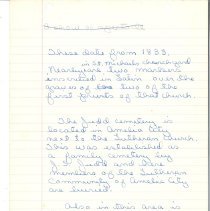 These date from 1833.
in St. Michaels churchyard
Nearby are two markers
inscribed in Latin over the
graves of two of the
first priests of that church.
The Judd cemetery is
located in Amelia City
next to the Lutheran Church.
This was established as
a family cemetery by
J. Judd and
members of the Lutheran
Community of Amelia City
are buried.
Also in this area is